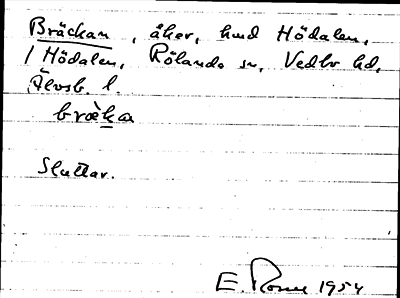 Bräckan, åker, hmd Hödalen,
/ Hödalen, Rölanda sn, Vedbo hd,
Älvsb. l.
bræ̀ka
Sluttar.
E. 1954